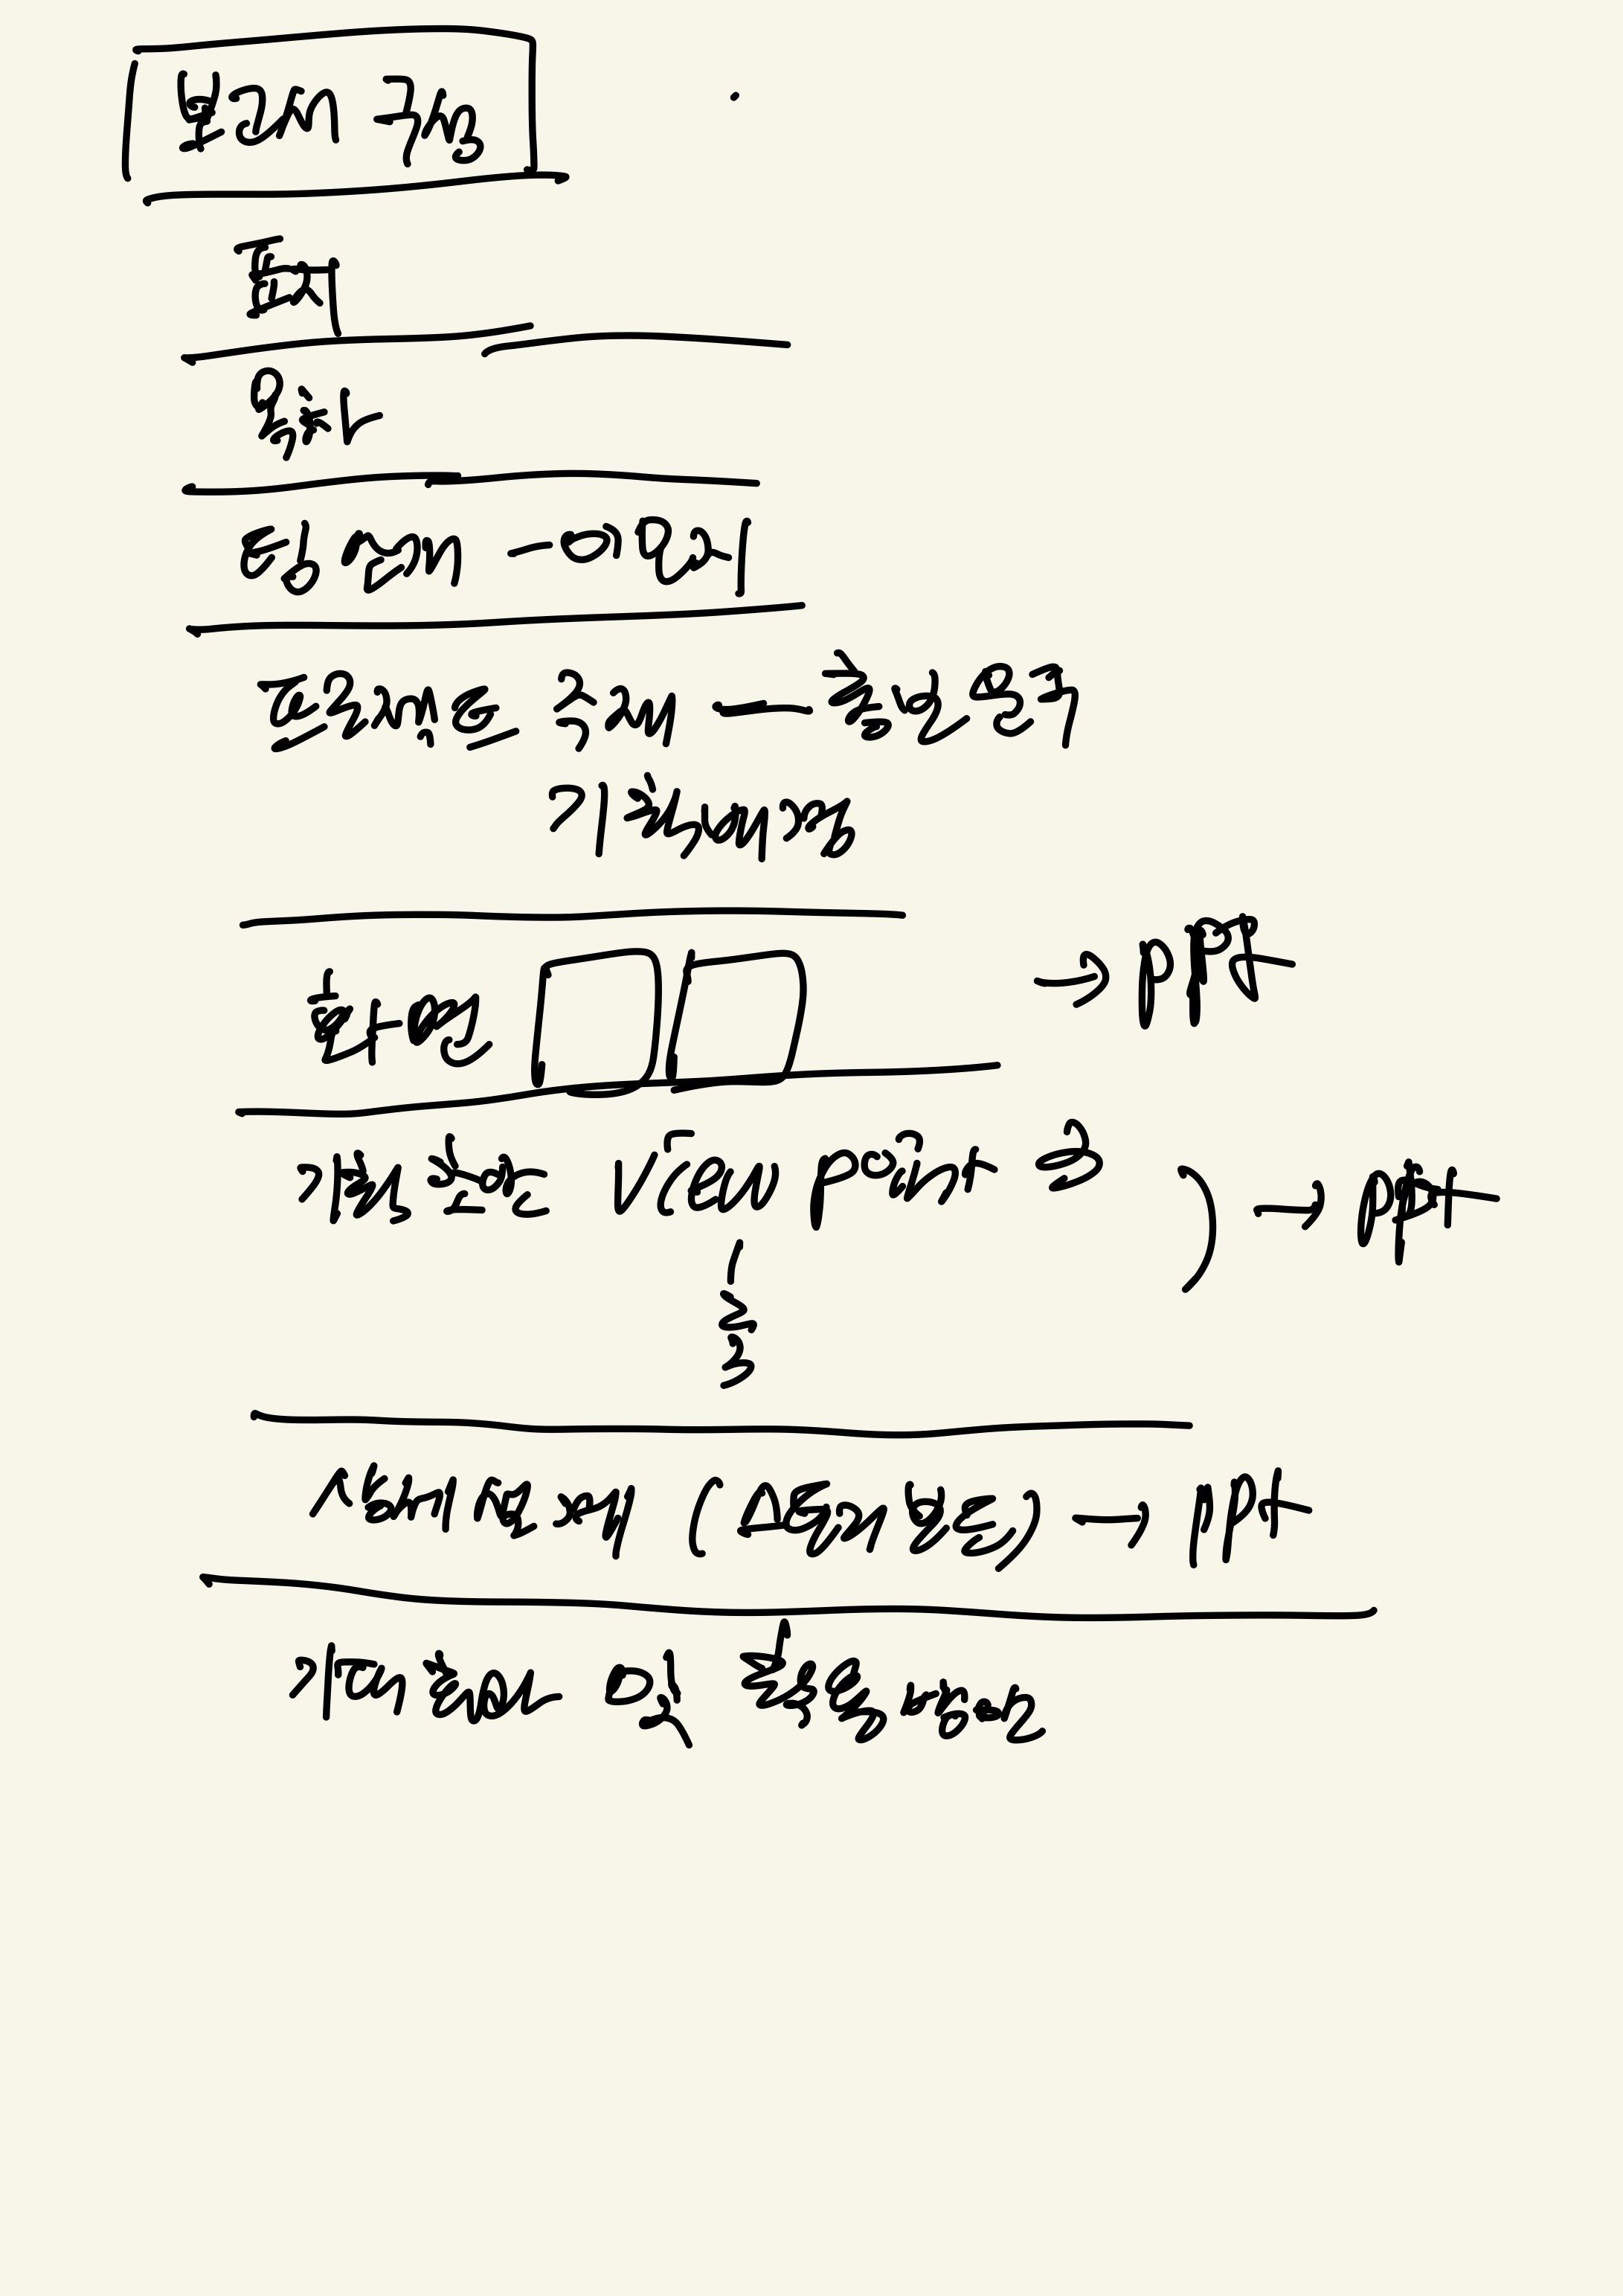 보고서 구성
표지
목차
팀 소개 - 이미지
프로젝트 주제 - 충분한 연구
기획배경
화면 → ppt
기획 화면 View point 2 → ppt
1
2
3
상세설계 (스토리보드) → ppt
기대효과 및 활용방안